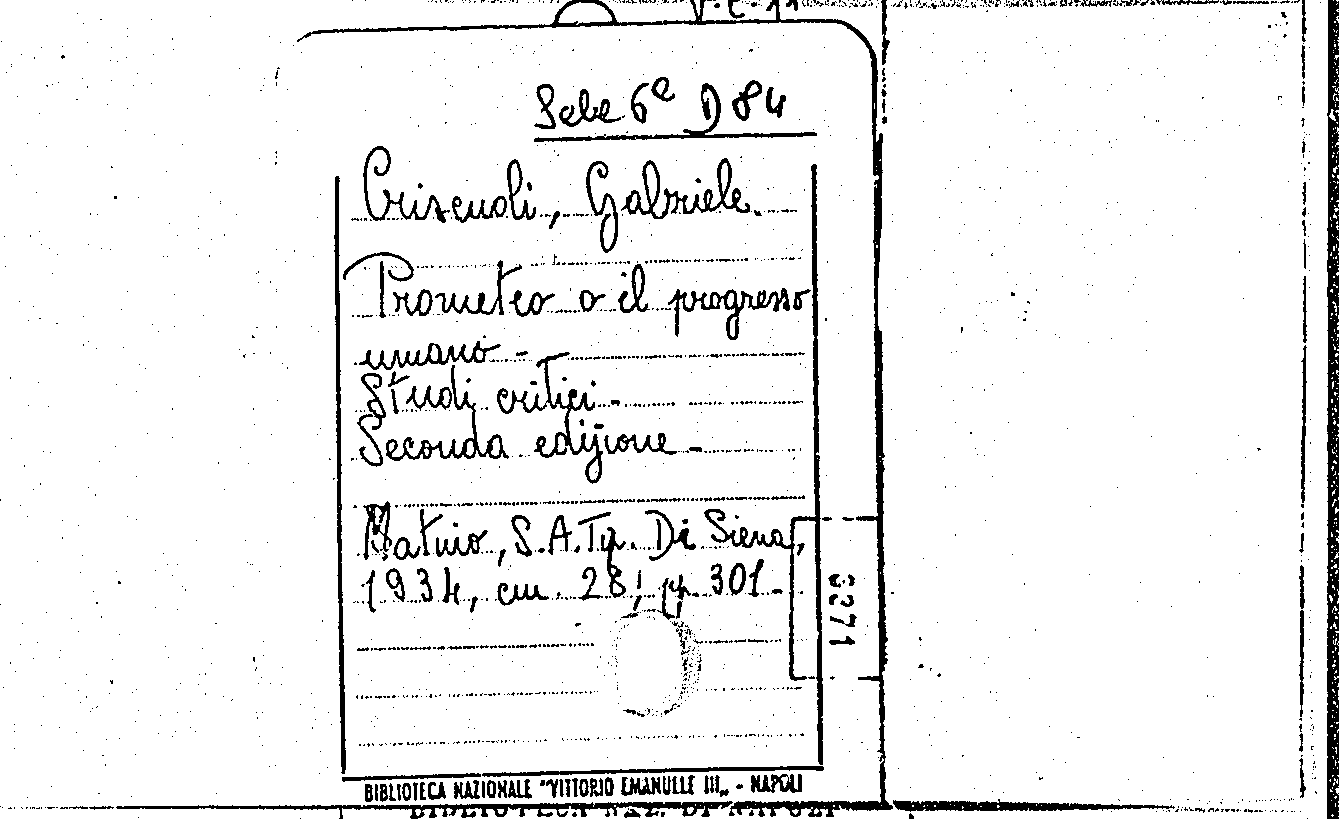 V-C-11
Sebe 6ª D 84
Criscuoli, Gabriele.
Prometeo o il progresso
umano -
Studi critici -
Seconda edizione -
S.A.Tip. Di Siena,
1934, cm. 28, pp. 301 -
6271
BIBLIOTECA NAZIONALE "VITTORIO EMANUELE III„ - NAPOLI
BIBLIOTECA NAZ. DI NAPOLI